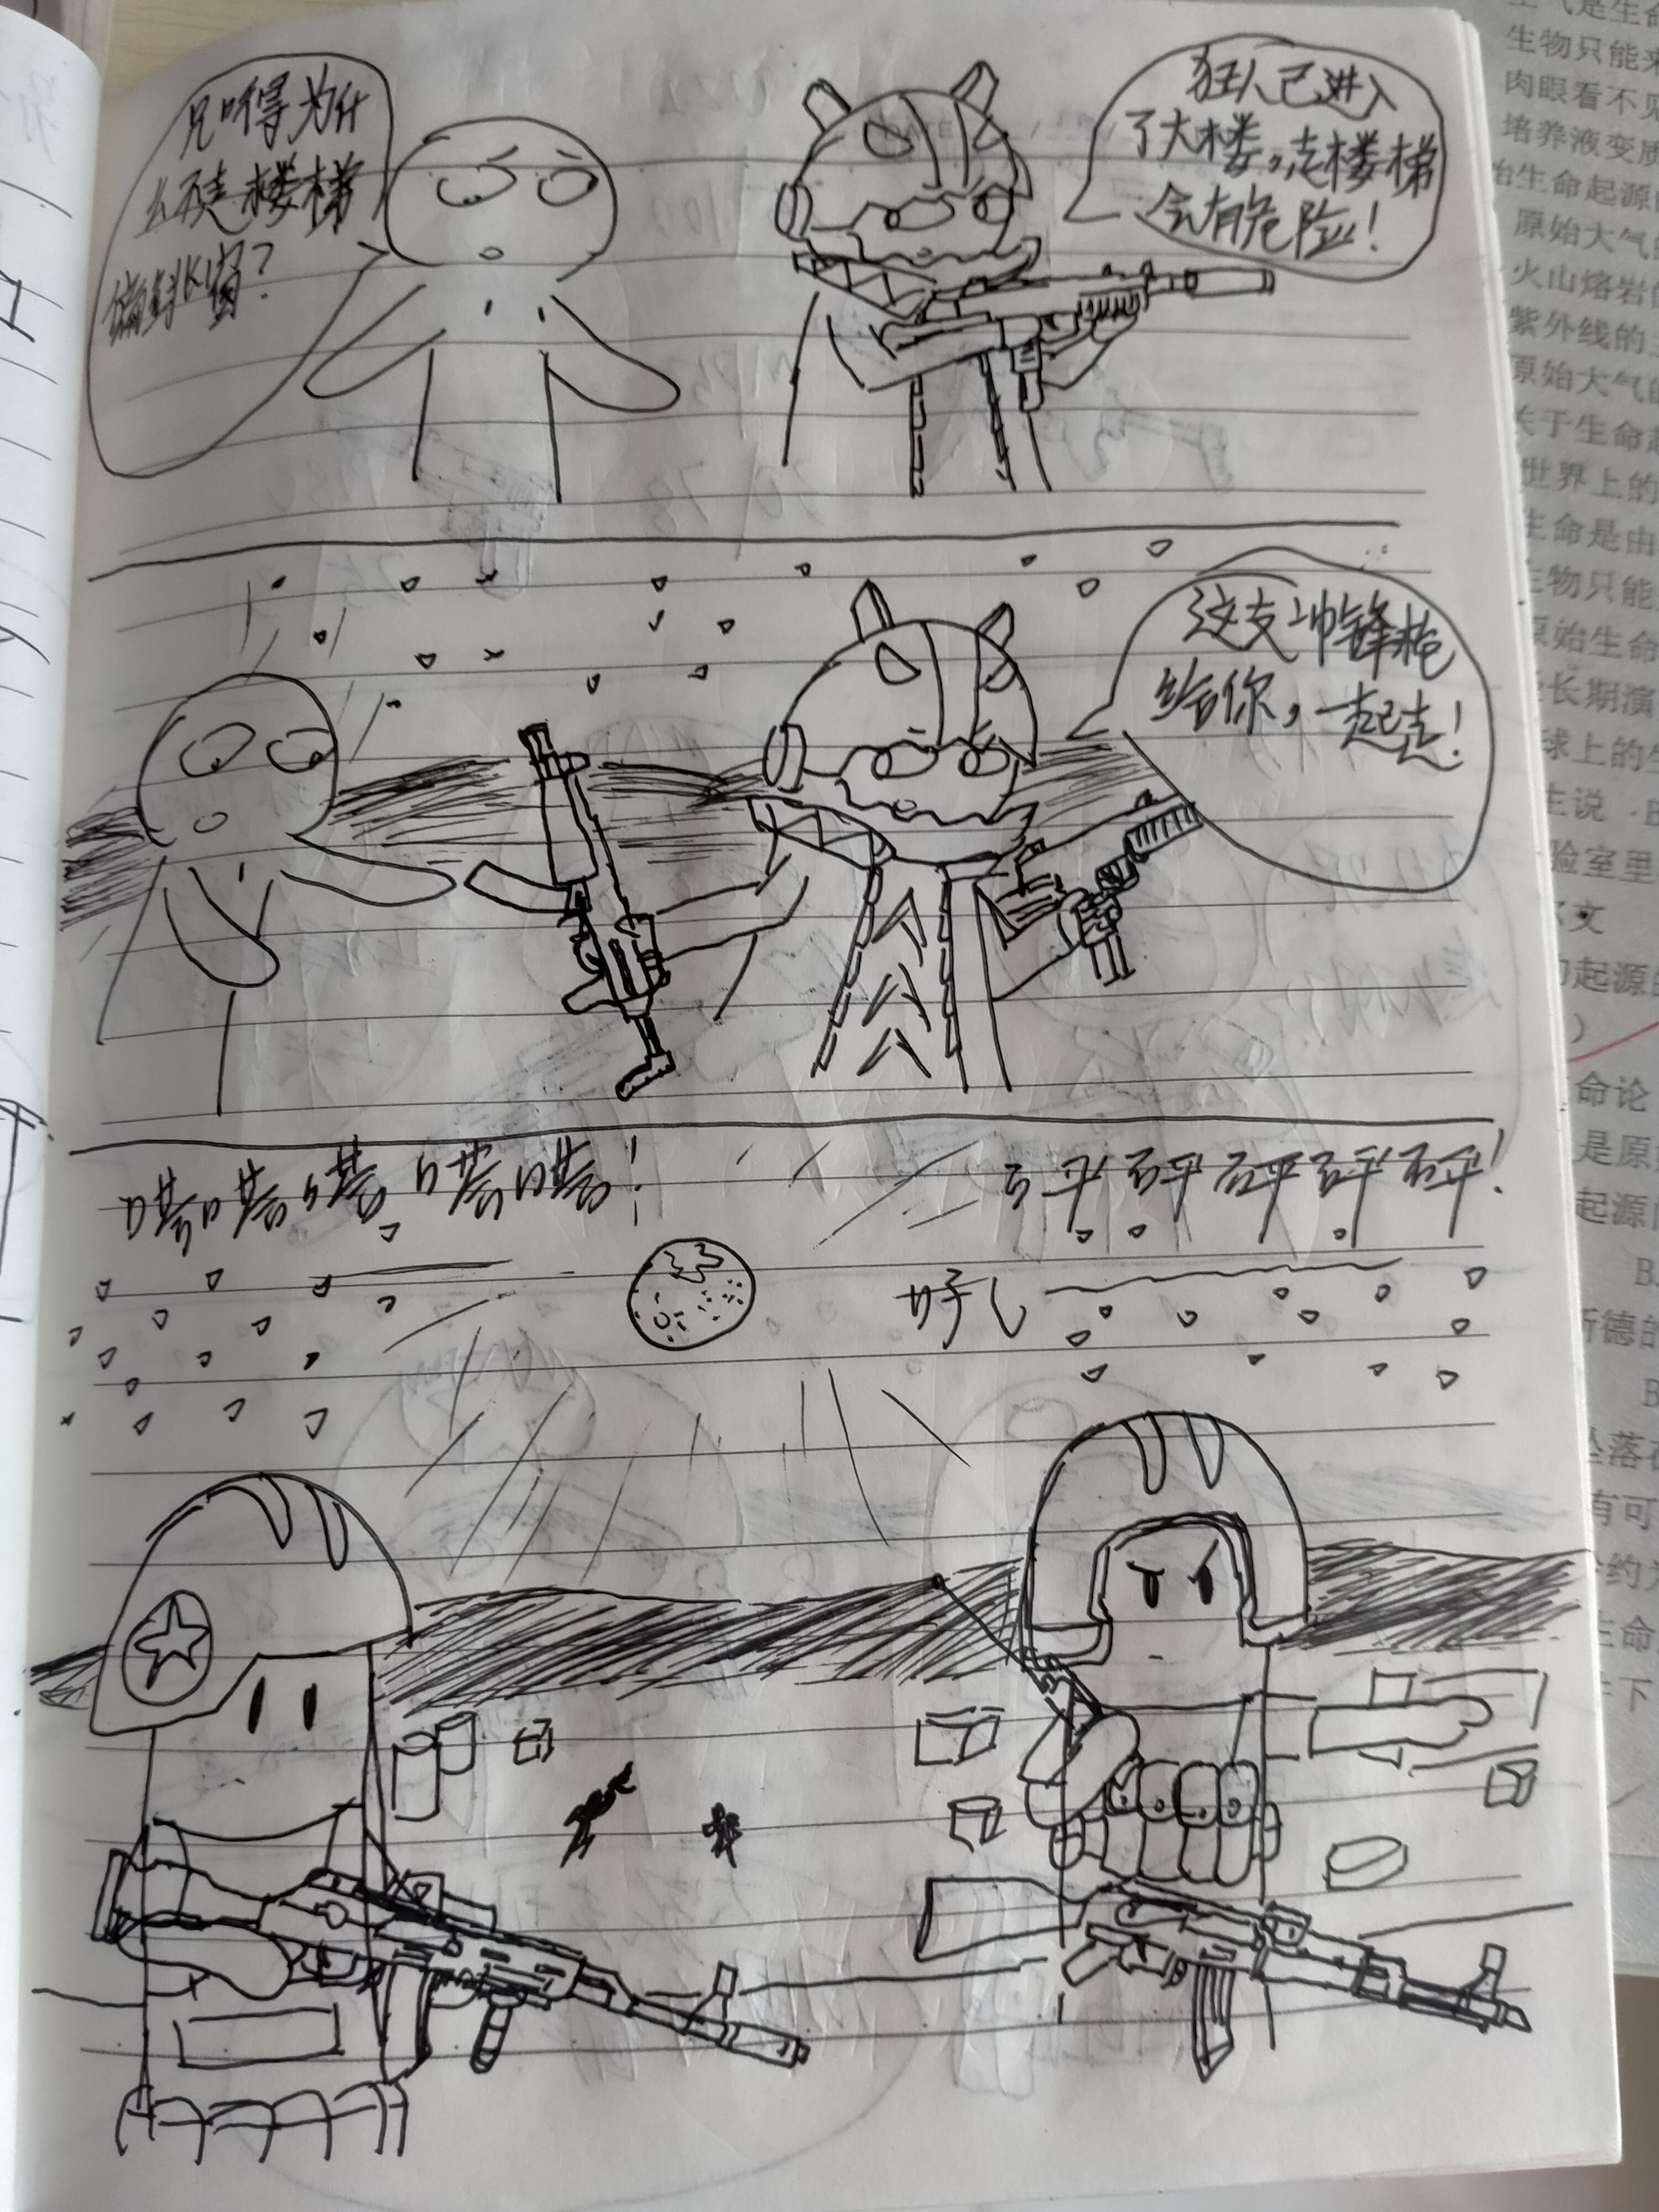 兄嘚得为什
么不走楼梯
偏翻窗?
狂人已进入
了大楼,走楼梯
会有危险!
这支冲锋枪
给你,一起走!
嗒嗒嗒嗒嗒!
砰砰砰砰砰!
生物只能来
肉眼看不见
培养液变质
始生命起源的
原始大气的
火山熔岩的
紫外线的
原始大气的
关于生命起
世界上的
生命是由
生物只能
原始生命
长期演
球上的生
生说 ·B
验室里
文
起源的
)
命论
是原始
起源
B
斯德的
B
坠落在
有可
约为
生命
下